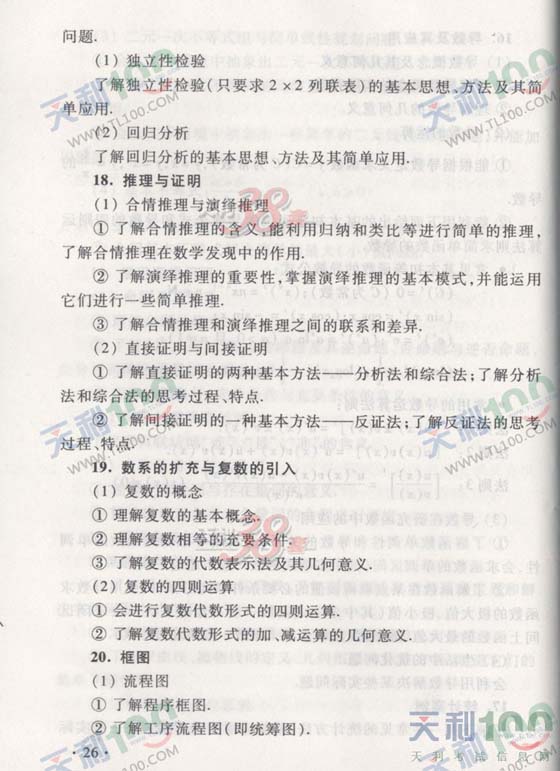 问题.
(1) 独立性检验
了解独立性检验(只要求 2×2 列联表)的基本思想、方法及其简
单应用.
(2) 回归分析
了解回归分析的基本思想、方法及其简单应用.
18. 推理与证明
(1) 合情推理与演绎推理
① 了解合情推理的含义,能利用归纳和类比等进行简单的推理,
了解合情推理在数学发现中的作用.
② 了解演绎推理的重要性,掌握演绎推理的基本模式,并能运用
它们进行一些简单推理.
③ 了解合情推理和演绎推理之间的联系和差异.
(2) 直接证明与间接证明
① 了解直接证明的两种基本方法——分析法和综合法;了解分析
法和综合法的思考过程、特点.
② 了解间接证明的一种基本方法——反证法;了解反证法的思考
过程、特点.
19. 数系的扩充与复数的引入
(1) 复数的概念
①理解复数的基本概念.
②理解复数相等的充要条件.
③了解复数的代数表示法及其几何意义.
(2) 复数的四则运算
①会进行复数代数形式的四则运算.
② 了解复数代数形式的加、减运算的几何意义.
20. 框图
(1) 流程图
① 了解程序框图.
② 了解工序流程图(即统筹图).
· 26 ·
天利100
WWW.TL100.COM
天利38套
天利考试信息网